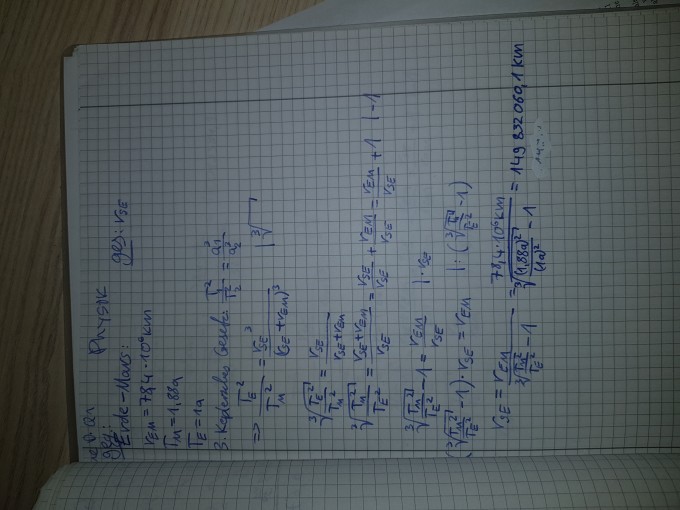 Physik
geg: ges: r_SE
Erde-Mars:
r_EM = 78,4 · 10⁶ km
T_M = 1,88a
T_E = 1a
3. Keplersches Gesetz: T₁²/T₂² = a₁³/a₂³
=> T_E²/T_M² = r_SE³/(r_SE + r_EM)³ | ∛
∛(T_E²/T_M²) = r_SE/(r_SE + r_EM)
∛(T_M²/T_E²) = (r_SE + r_EM)/r_SE = r_SE/r_SE + r_EM/r_SE = r_EM/r_SE + 1 | -1
∛(T_M²/T_E²) - 1 = r_EM/r_SE | · r_SE
(∛(T_M²/T_E²) - 1) · r_SE = r_EM | : (∛(T_M²/T_E²) - 1)
r_SE = r_EM/(∛(T_M²/T_E²) - 1) = 78,4 · 10⁶ km/(∛((1,88a)²/(1a)²) - 1) = 149 832 060,1 km